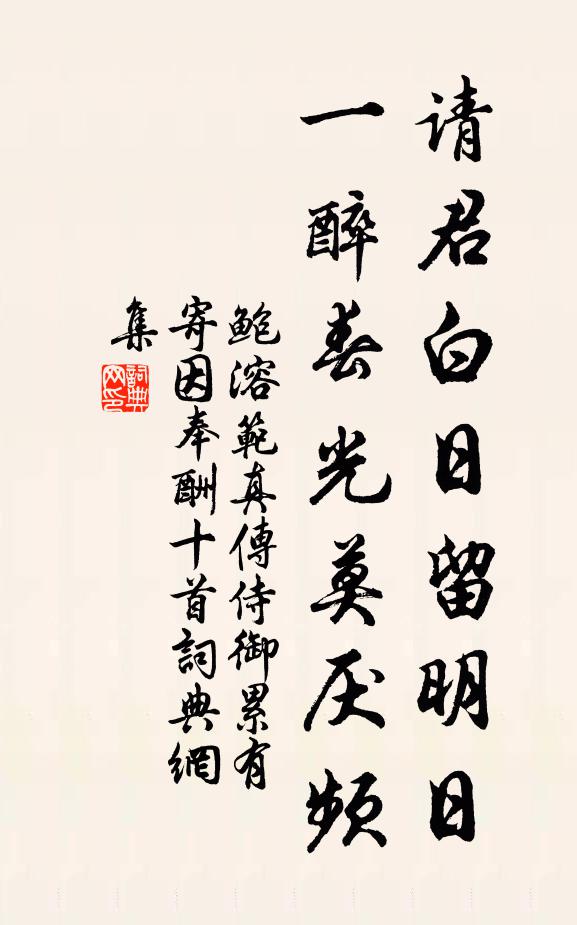 请君白日留明日
一醉春光莫厌頻
鲍溶範真傳侍御累有
寄因奉酬十首詞典網
集
詞典
网印